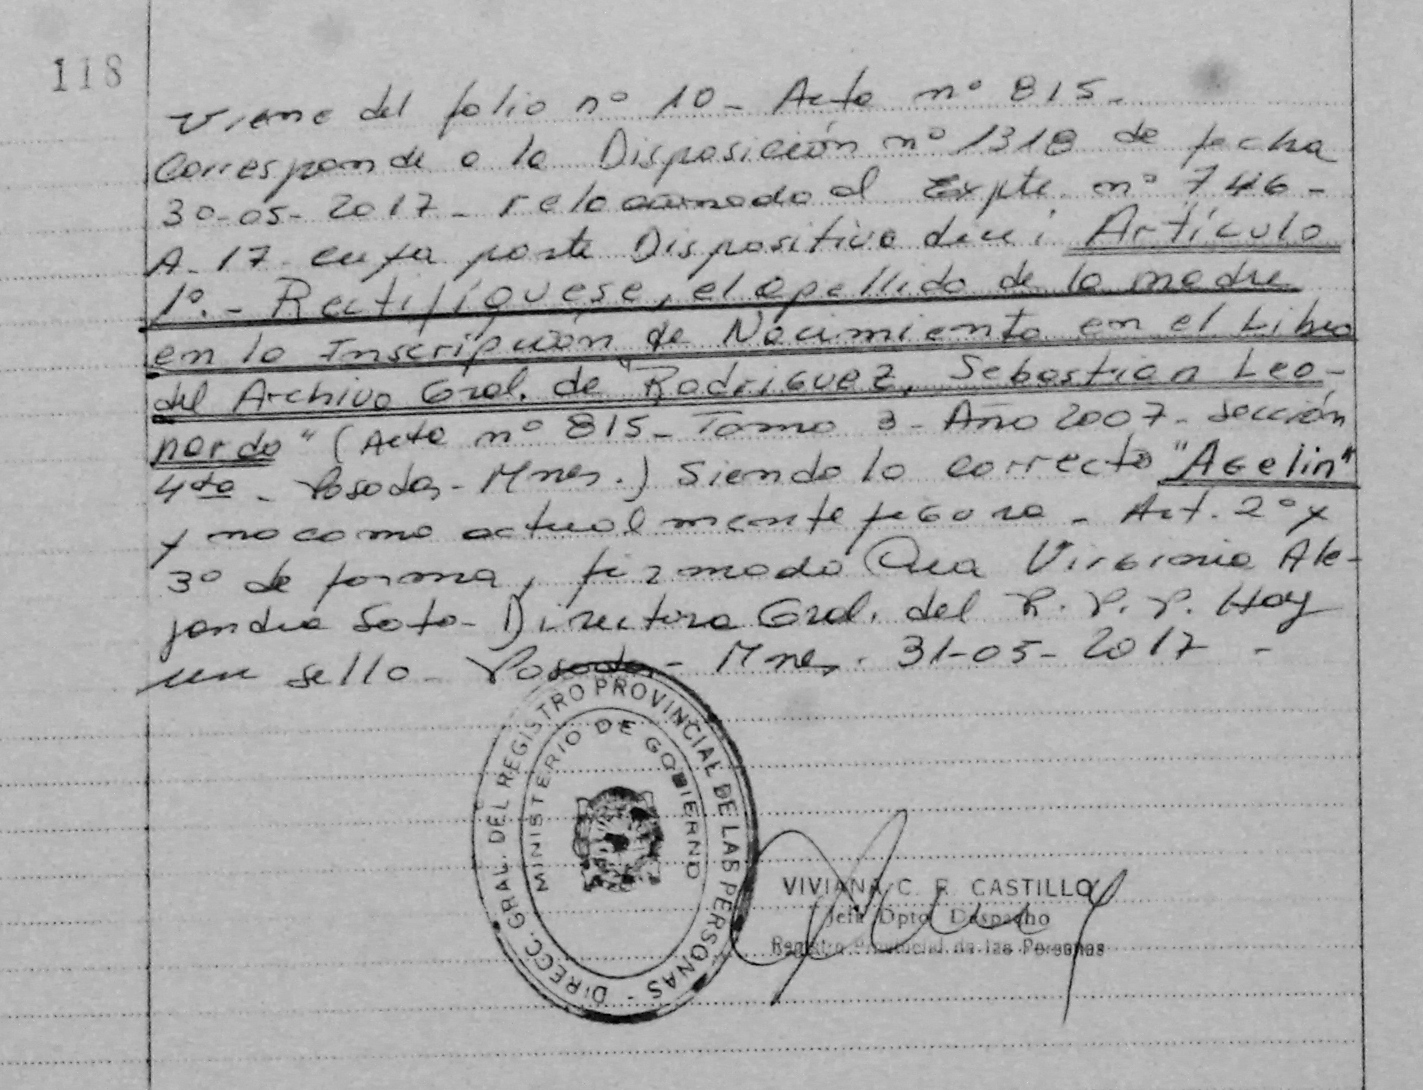 118
Viene del folio nº 10 - Acta nº 815-
Corresponde a la Disposición nº 1318 de fecha
30-05-2017 - relacionado al Expte. nº 746-
A-17- cuya parte Dispositiva dice: Artículo
1º.- Rectifíquese, el apellido de la madre
en la Inscripción de Nacimiento en el Libro
del Archivo Gral. de "Rodriguez, Sebastian Leo-
nardo" (Acta nº 815- Tomo 3- Año 2007- Sección
4ta - Posadas- Mnes.) Siendo lo correcto "Agelin"
y no como actualmente figura - Art. 2º y
3º de forma, firmado Dra Virginia Ale-
jandra Soto- Directora Gral. del R.P.P. Hay
un sello - Posadas - Mnes. 31-05-2017 -
DIRECC. GRAL. DEL REGISTRO PROVINCIAL DE LAS PERSONAS -
MINISTERIO DE GOBIERNO
VIVIANA C. E. CASTILLO
Jefa Dpto Despacho
Registro Provincial de las Personas